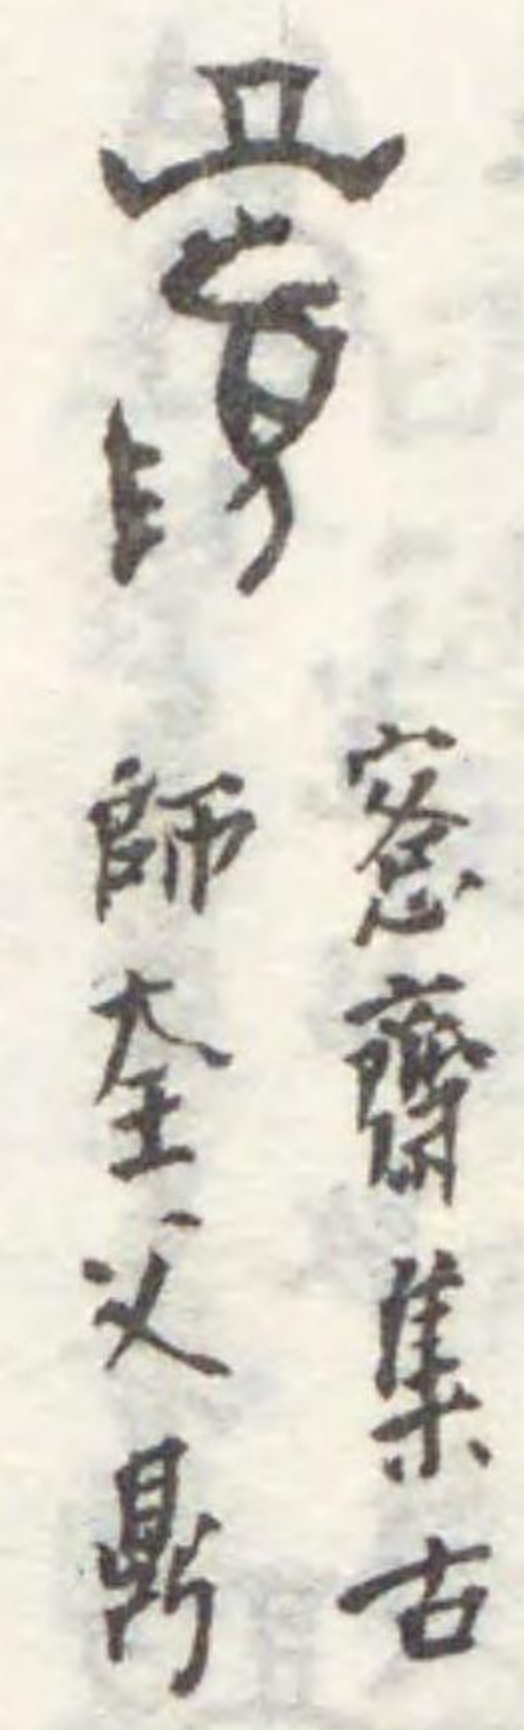 愙齋集古
師奎父鼎